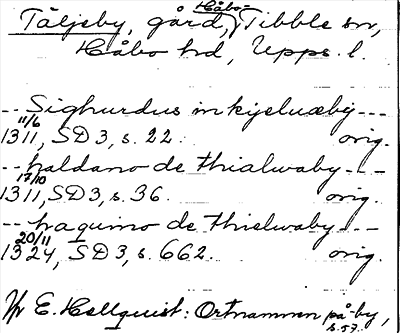 Täljeby, gård, Håbo-Tibble sn,
Håbo hd, Upps. l.
-- Sighurdus in kyeluæby ---
1311 11/6, SD 3, s. 22. orig.
-- haldano de thialwaby - --
1311 17/10, SD 3, s. 36. orig.
-- haquino de thielwaby -- -
1324 20/11, SD 3, s. 662. orig.
Jfr E. Hellquist: Ortnamnen på -by,
s. 57.